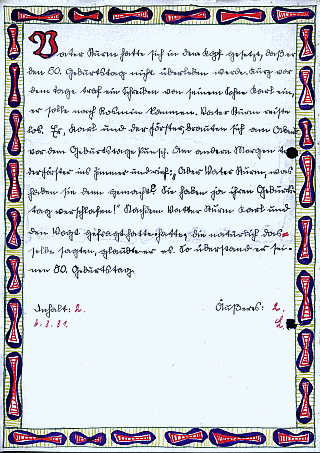 Vater Sturm hatte sich in den Kopf gesetzt, daß er
den 80. Geburtstag nicht überleben werde. Kurz vor
dem Tage traf ein Schreiben von seinem Sohne Karl ein,
er solle nach Rosmin kommen. Vater Sturm reiste
los. Er, Karl und der Förster, brauten sich am Abend
vor dem Geburtstage Punsch. Am andern Morgen
der Förster ins Zimmer und rief: „Aber Vater Sturm, was
haben sie denn gemacht? Sie haben ja ihren Geburts=
tag verschlafen!" Nachdem Vatter Sturm Karl und
den Vogt gefragt hatte, die natürlich das=
selbe sagten, glaubte er es. So überstand er sei=
nen 80. Geburtstag.
Inhalt: 2. Äußeres: 2.
6. 3. 31.